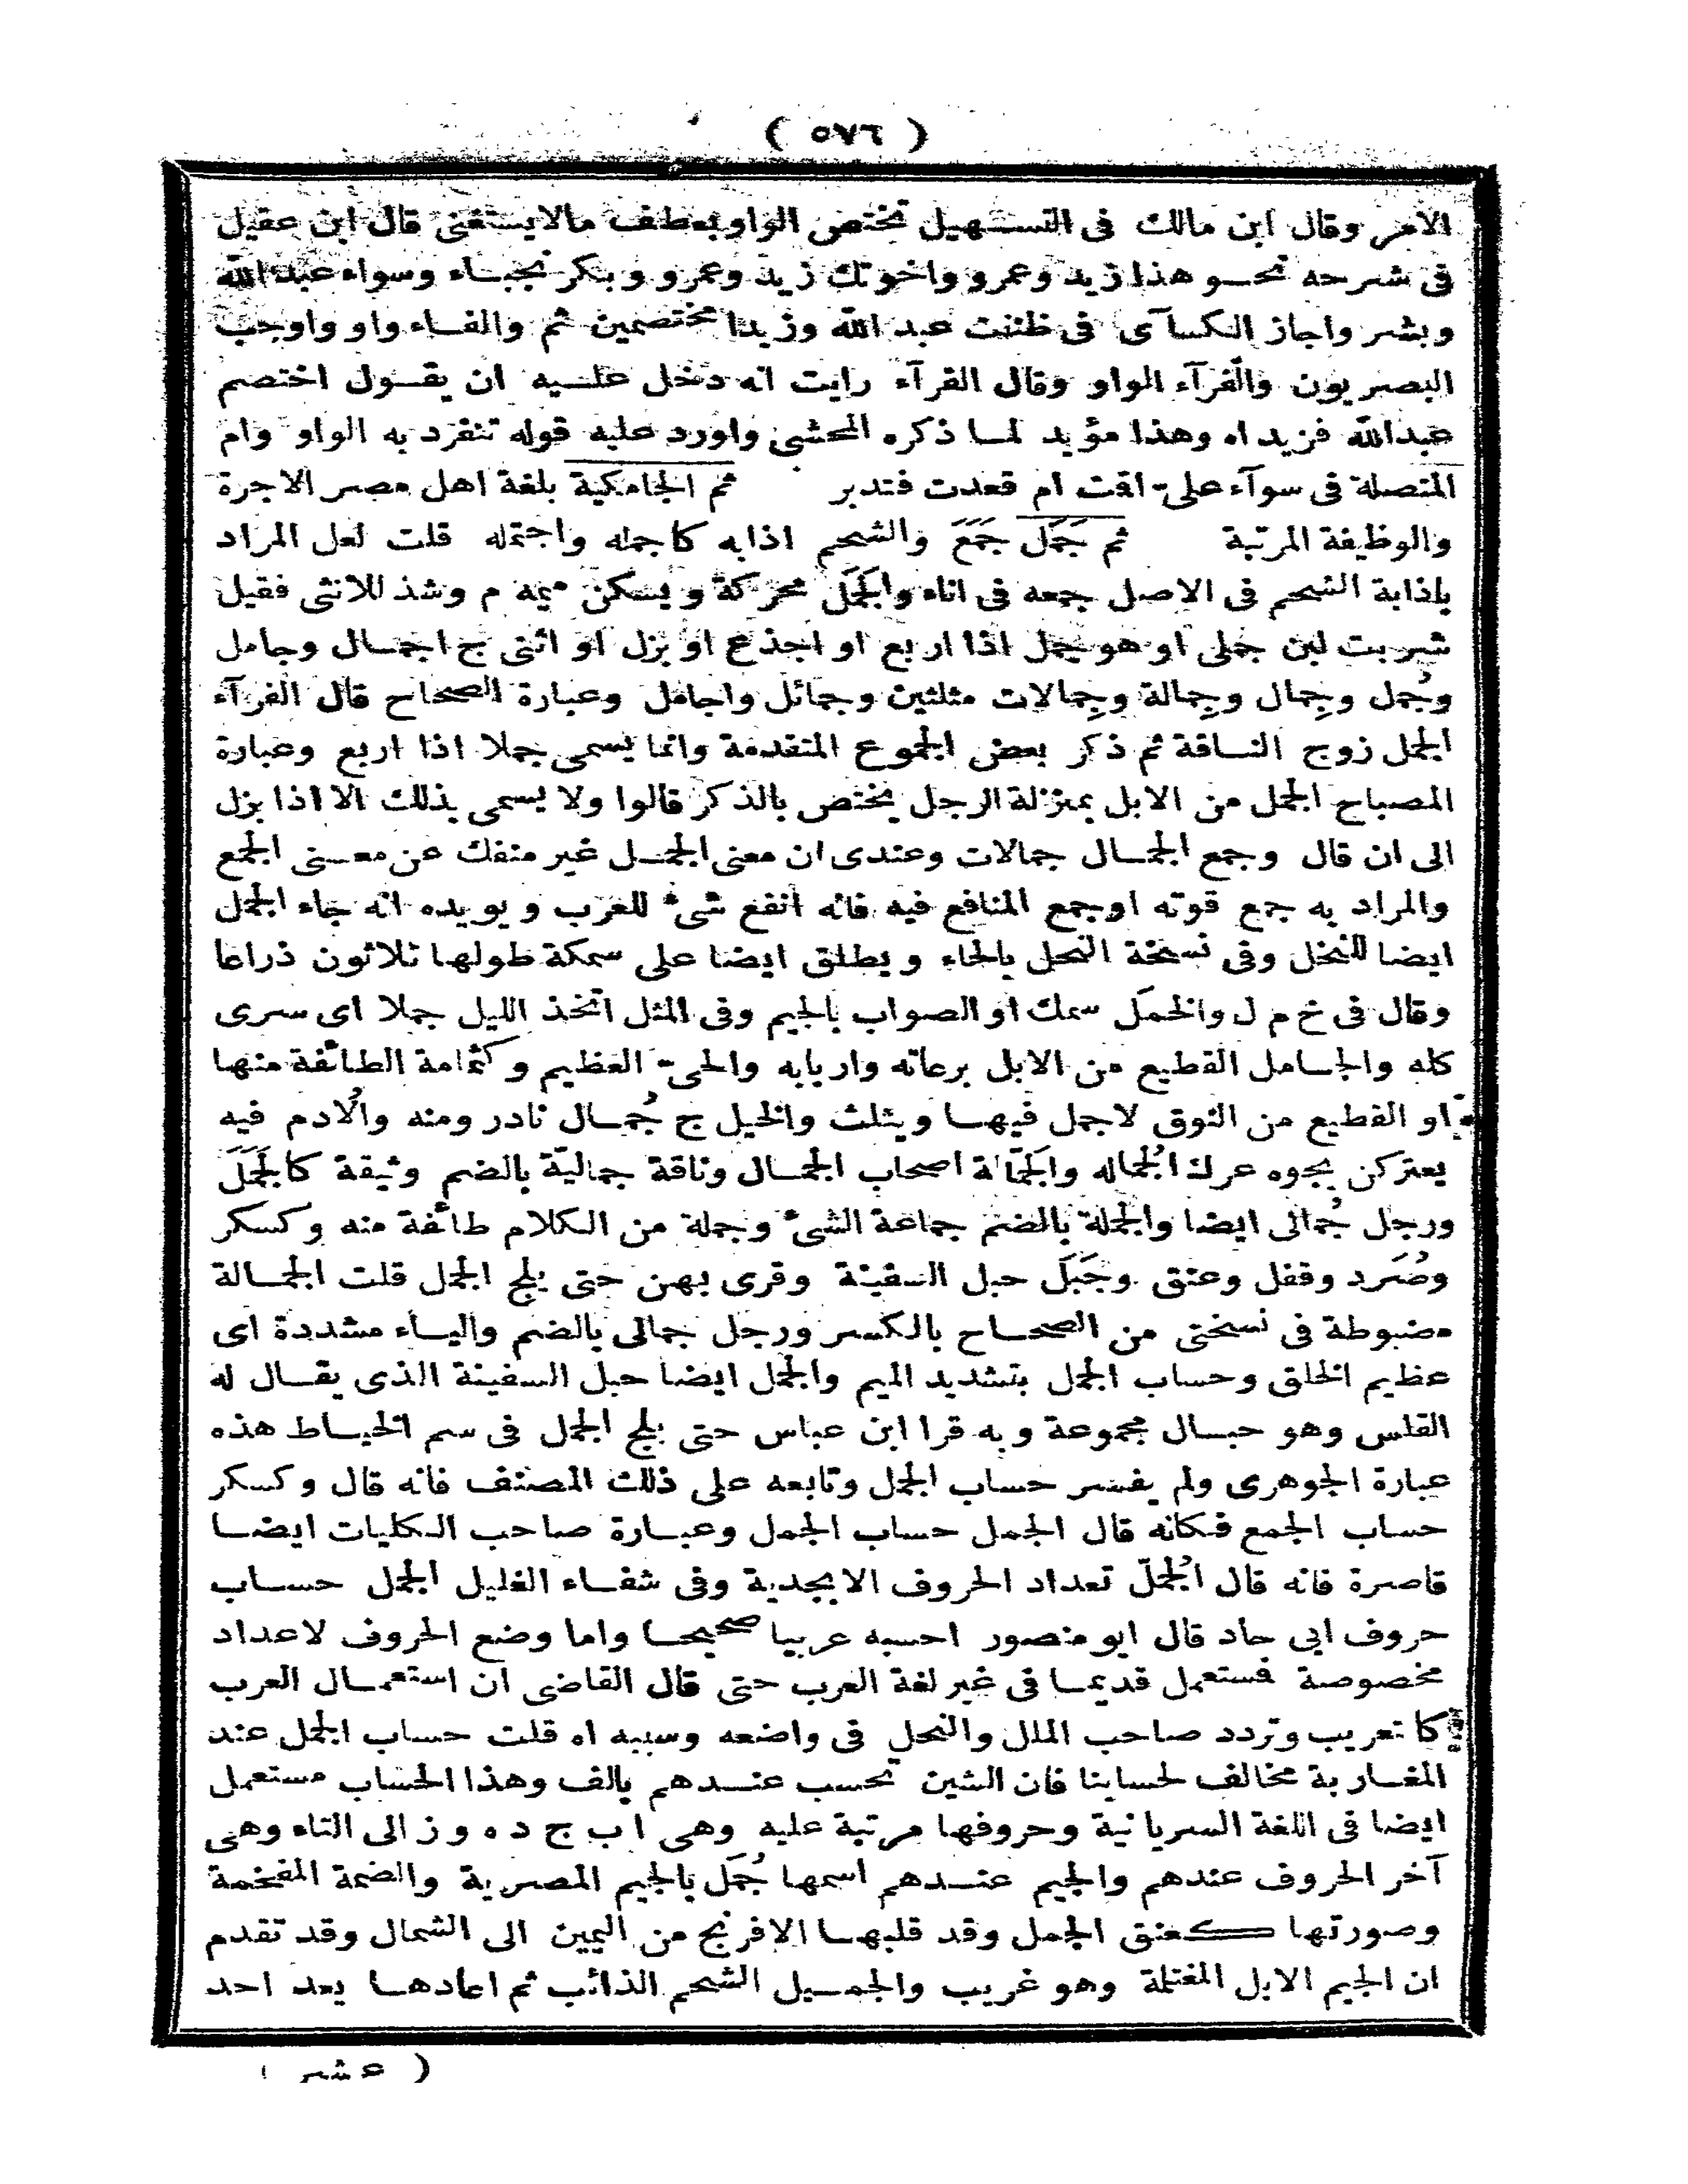 ( ٥٧٦ )
الامر وقال ابن مالك فى التسهيل تختص الواو بعطف مالايستغنى قال ابن عقيل
فى شرحه نحو هذا زيد وعمرو واخوتك زيد وعمرو و بكر نجباء وسواء عبد الله
وبشر واجاز الكسآى فى ظننت عبد الله وزيدا مختصمين ثم والفاء واو واوجب
البصريون والفرآء الواو وقال الفرآء رايت انه دخل عليه ان يقول اختصم
عبدالله فزيد اه وهذا مؤيد لما ذكره المحشى واورد عليه قوله تنفرد به الواو وام
المتصلة فى سوآء علىّ اقت ام قعدت فتدبر ثم الجامكية بلغة اهل مصر الاجرة
والوظيفة المرتبة ثم جَمَل جَمَعَ والشحم اذابه كاجمله واجتمله قلت لعل المراد
باذابة الشحم فى الاصل جمعه فى اناء والجَمَل محركة و يسكن ميمه م وشذ للانثى فقيل
شربت لبن جملى او هو جمل اذا اربع او اجذع او بزل او اثنى ج اجمال وجامل
وجُمل وجِمال وجِمالة وجِمالات مثلثين وجمائل واجامل وعبارة الصحاح قال الفرآء
الجمل زوج الناقة ثم ذكر بعض الجموع المتقدمة وانما يسمى جملا اذا اربع وعبارة
المصباح الجمل من الابل بمنزلة الرجل يختص بالذكر قالوا ولا يسمى بذلك الا اذا بزل
الى ان قال وجمع الجمال جمالات وعندى ان معنى الجمل غير منفك عن معنى الجمع
والمراد به جمع قوته اوجمع المنافع فيه فانه انفع شىء للعرب و يويده انه جاء الجمل
ايضا للنخل وفى نسخة النحل بالحاء و يطلق ايضا على سمكة طولها ثلاثون ذراعا
وقال فى خ م ل والخمَل سمك او الصواب بالجيم وفى المثل اتخذ الليل جملا اى سرى
كله والجامل القطيع من الابل برعاته واربابه والحىّ العظيم وكثمامة الطائفة منها
او القطيع من النوق لاجمل فيها ويثلث والخيل ج جُمال نادر ومنه والاُدم فيه
يعتركن بجوه عرك الجُماله والجَمّالة اصحاب الجمال وناقة جماليّة بالضم وثيقة كالجَمَل
ورجل جُمالى ايضا والجملة بالضم جماعة الشىء وجملة من الكلام طائفة منه وكسكر
وصُرَد وقفل وعنق وجَبَل حبل السفينة وقرى بهن حتى يلج الجمل قلت الجمالة
مضبوطة فى نسختى من الصحاح بالكسر ورجل جمالى بالضم والياء مشددة اى
عظيم الخلق وحساب الجمل بتشديد الميم والجمل ايضا حبل السفينة الذى يقال له
القلس وهو حبال مجموعة وبه قرا ابن عباس حتى يلج الجمل فى سم الخياط هذه
عبارة الجوهرى ولم يفسر حساب الجمل وتابعه على ذلك المصنف فانه قال وكسكر
حساب الجمع فكانه قال الجمل حساب الجمل وعبارة صاحب الكليات ايضا
قاصرة فانه قال الجُمّل تعداد الحروف الابجدية وفى شفاء الغليل الجمل حساب
حروف ابى جاد قال ابو منصور احسبه عربيا صحيحا واما وضع الحروف لاعداد
مخصوصة فستعمل قديما فى غير لغة العرب حتى قال القاضى ان استعمال العرب
كا تعريب وتردد صاحب الملل والنحل فى واضعه وسببه اه قلت حساب الجمل عند
المغاربة مخالف لحسابنا فان الشين تحسب عندهم بالف وهذا الحساب مستعمل
ايضا فى اللغة السريانية وحروفها مرتبة عليه وهى ا ب ج د ه و ز الى التاء وهى
آخر الحروف عندهم والجيم عندهم اسمها جُمَل بالجيم المصرية والضمة المفخمة
وصورتها كعنق الجمل وقد قلبها الافرنج من اليمين الى الشمال وقد تقدم
ان الجيم الابل المغتلمة وهو غريب والجميل الشحم الذائب ثم اعادها بعد احد
( عشر )